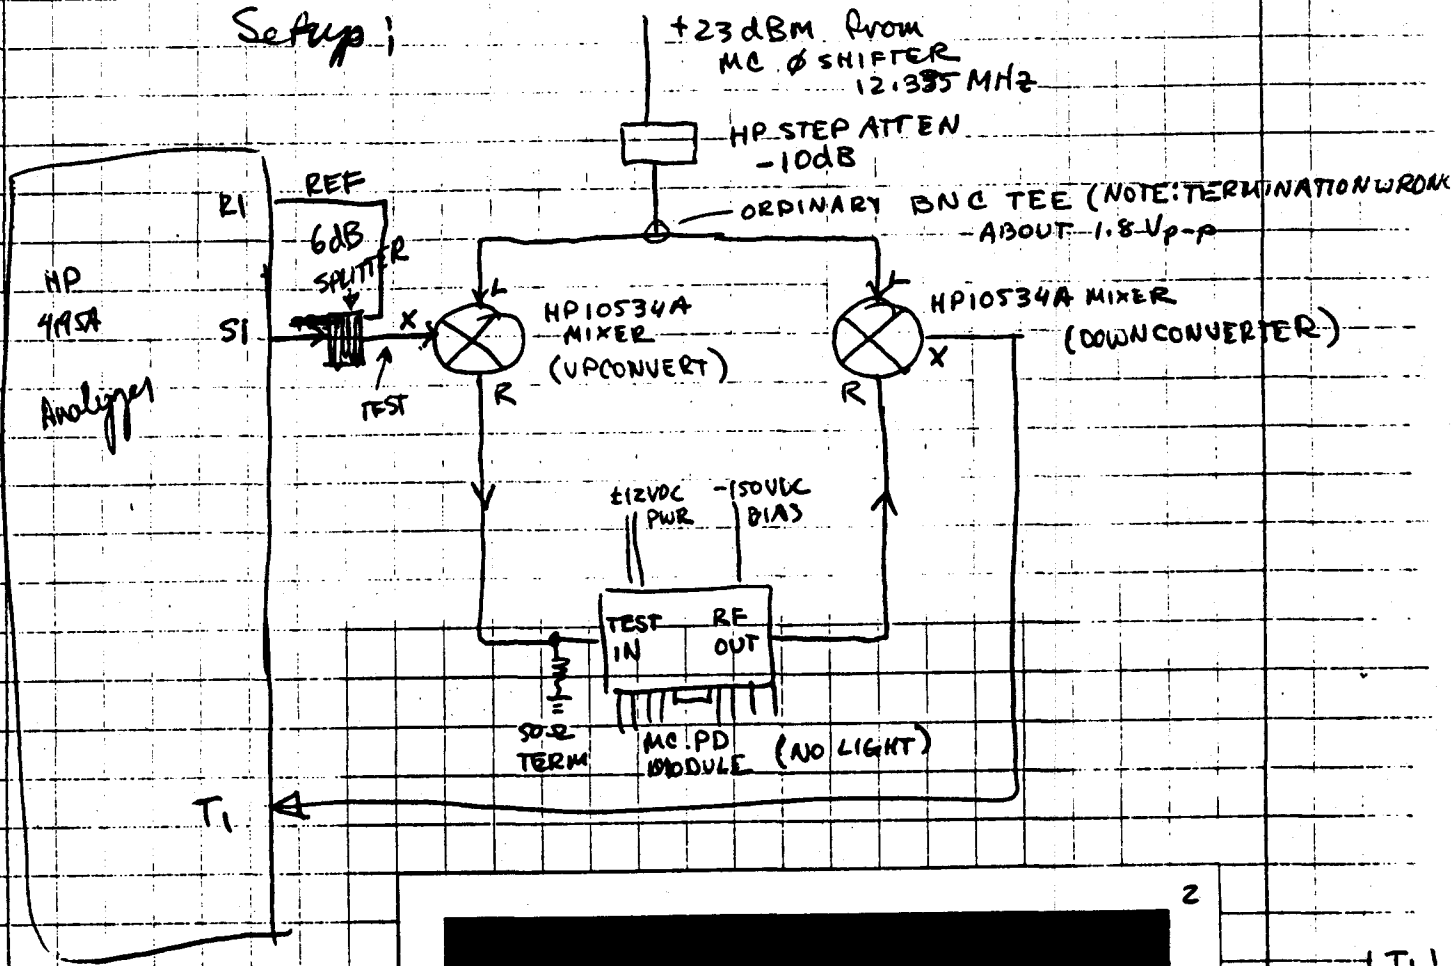 Setup:
+23dBm from
MC Ø SHIFTER
12.335 MHz
HP STEP ATTEN
-10dB
ORDINARY BNC TEE (NOTE: TERMINATION WRONG
-ABOUT 1.8 Vp-p
R1
REF
6dB
SPLITTER
HP
4195A
Analyzer
S1
X
TEST
L
HP10534A
MIXER
(UPCONVERT)
R
L
HP10534A MIXER
(DOWNCONVERTER)
X
R
±12VDC
PWR
-150VDC
BIAS
TEST
IN
RF
OUT
50Ω
TERM
MC PD
MODULE
(NO LIGHT)
T1
2
|T1|